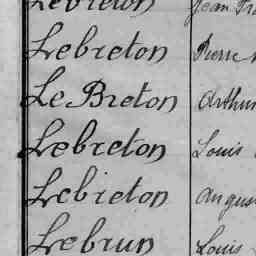 Lebreton Jean
Lebreton Pierre
Le Breton Arthur
Lebreton Louis
Lebreton
Lebrun Louis